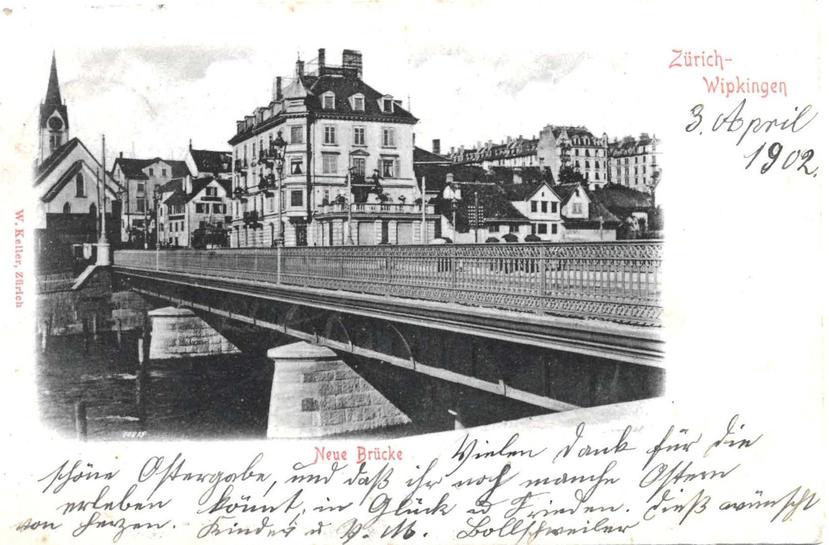 Zürich-
Wipkingen
3. April
1902.
W. Keller, Zürich
Neue Brücke
Vielen Dank für die
schöne Ostergabe, und daß ihr noch manche Ostern
erleben könnt, in Glück u Frieden. Dieß wünscht
von Herzen. Kinder u. V. M. Bollschweiler